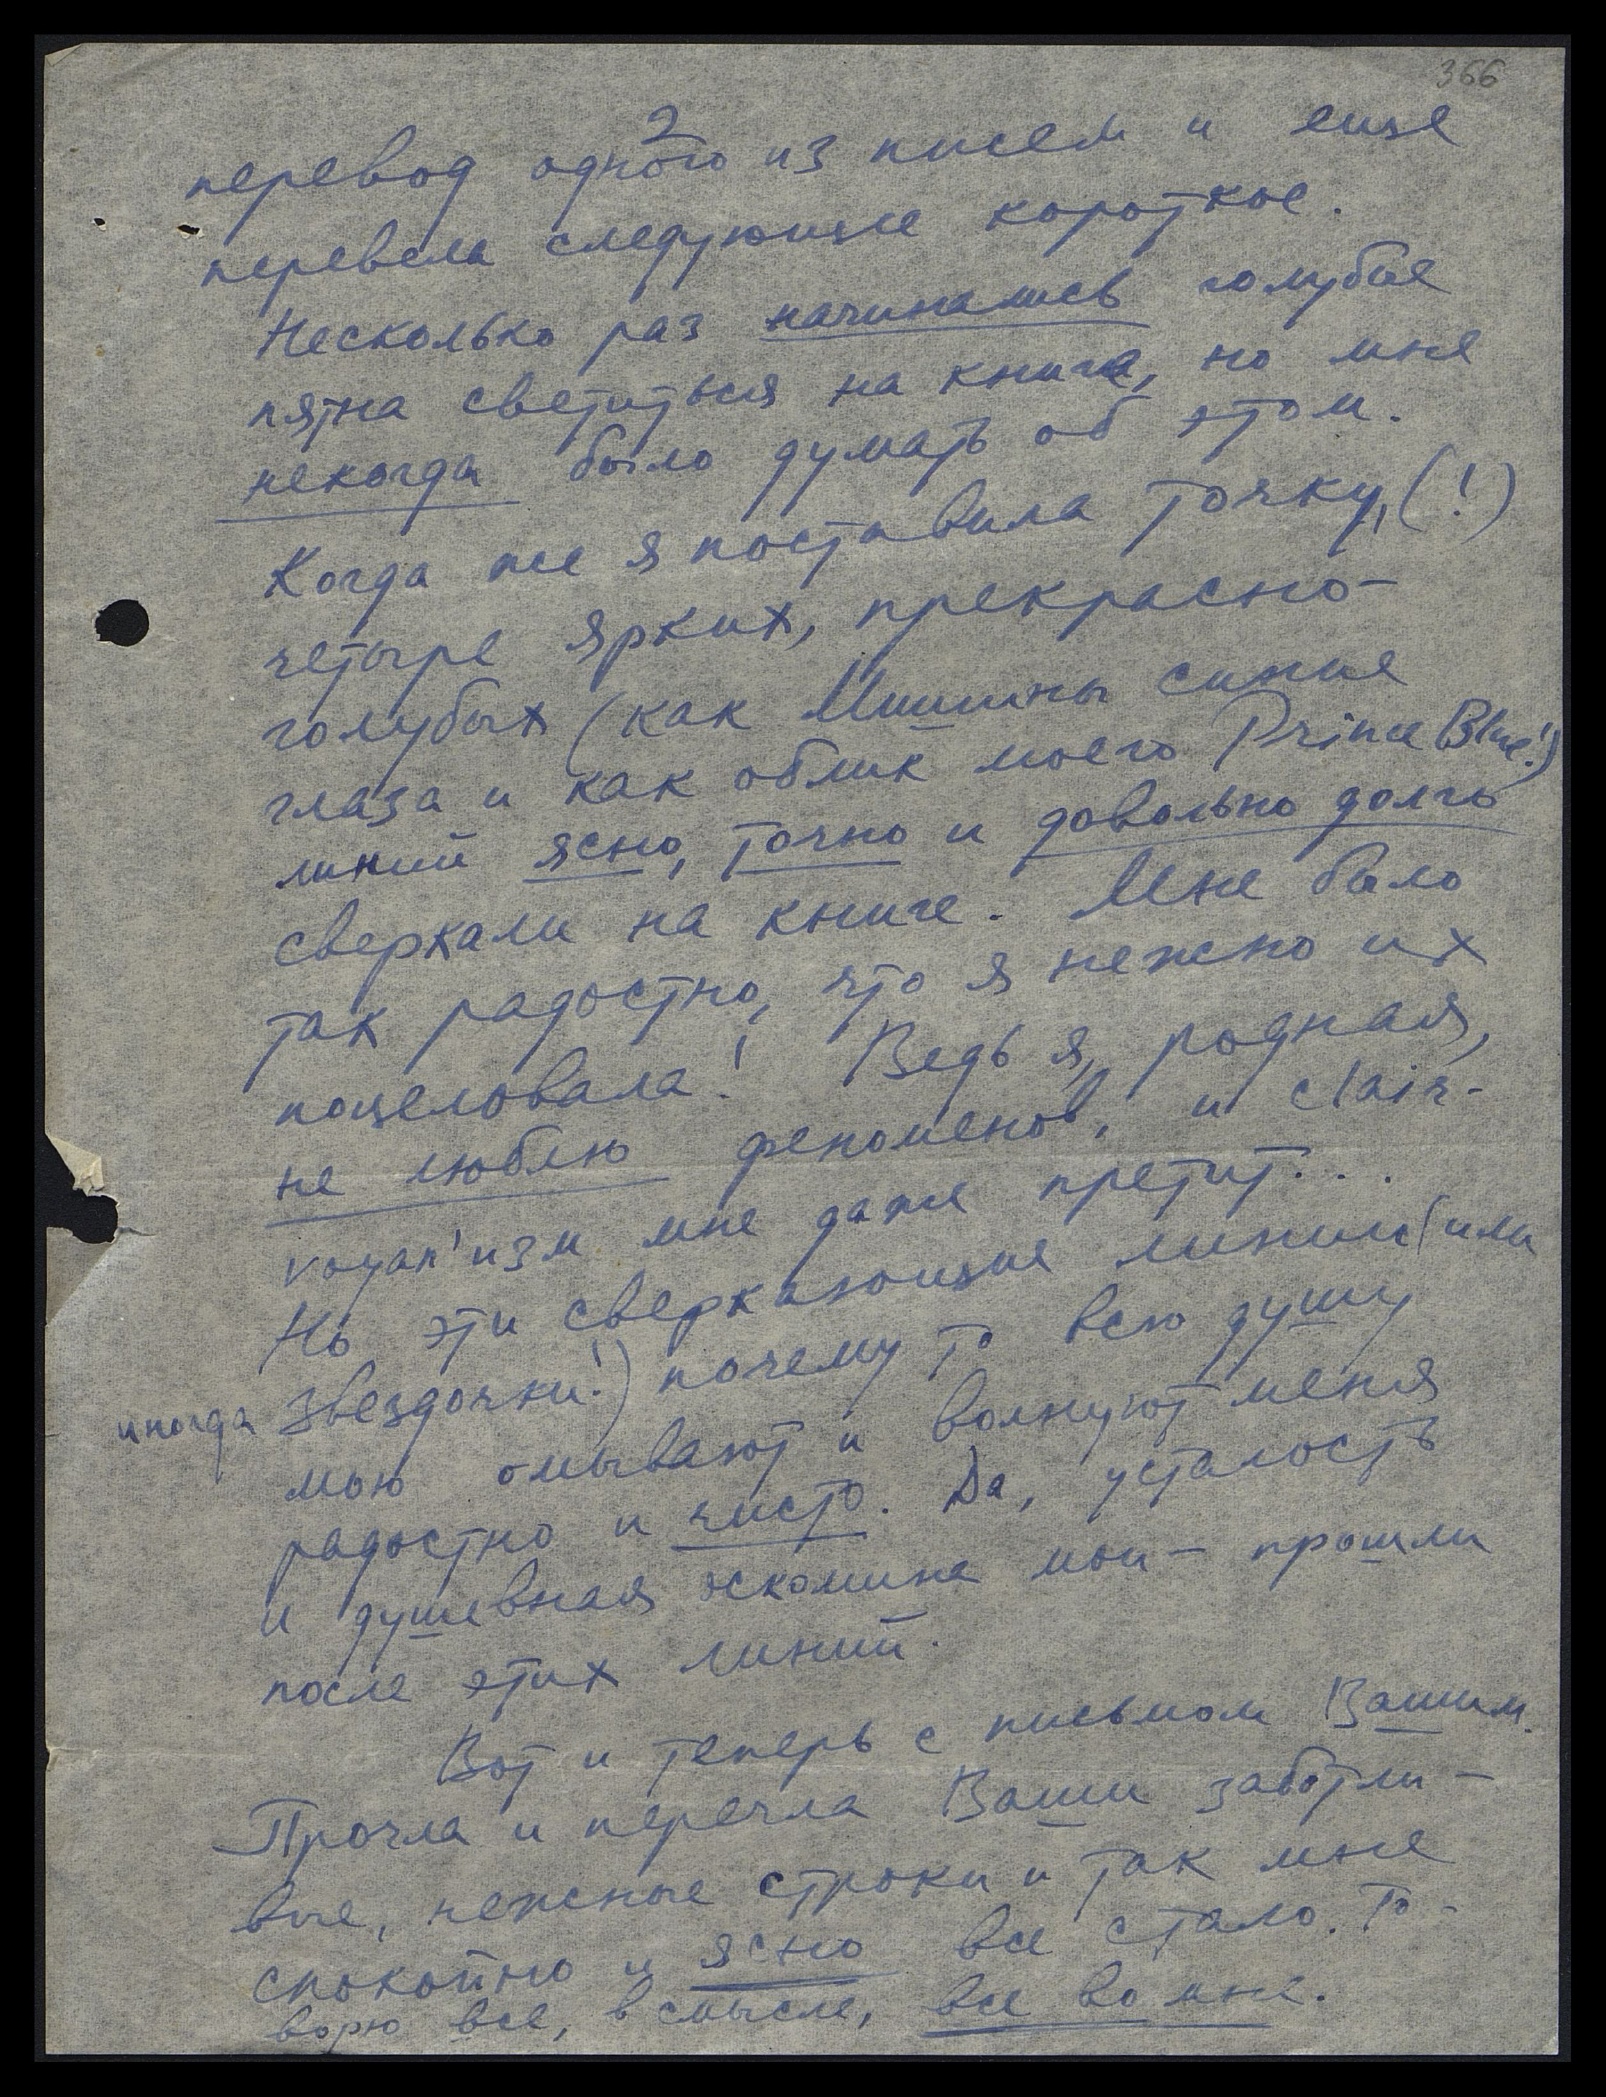 366
2
перевод одного из писем и еще
перевела следующее короткое.
Несколько раз начинались голубые
пятна светиться на книге, но мне
некогда было думать об этом.
Когда же я поставила точку, (!)
четыре ярких, прекрасно-
голубых (как Мишины синие
глаза и как облик моего Prince Blue!)
линий ясно, точно и довольно долго
сверкали на книге. Мне было
так радостно, что я нежно их
поцеловала! Ведь я, родная,
не люблю феноменов, и clair-
voyan'изм мне даже претит...
Но эти сверкающие линии (или
иногда звездочки!) почему то всю душу
мою омывают и волнуют меня
радостно и чисто. Да, усталость
и душевная оскомина мои – прошли
после этих линий.
Вот и теперь с письмом Вашим.
Прочла и перечла Ваши заботли-
вые, нежные строки и так мне
спокойно и ясно все стало. Го-
ворю все, в смысле, все во мне.